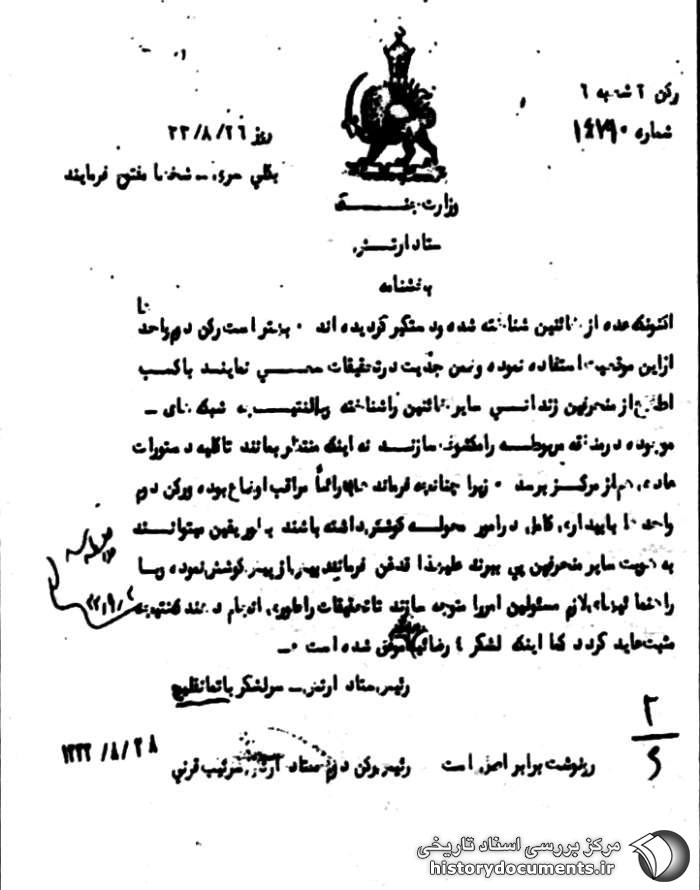 رکن ۲ شعبه ۶
شماره ۱۴۷۹۰
روز ۳۲/۸/۲۶
بکلی سری ـ شخصا مفتوح فرمایند
وزارت جنگ
ستاد ارتش
بخشنامه
اکنونکه عده از خائنین شناخته شده و دستگیر گردیده اند ۰ بهتر است رکن دوم واحد
ها
از این موقعیت استفاده نموده و ضمن جدیت در تحقیقات سعی نمایند با کسب
اطلاع از منحرفین زندانی سایر خائنین را شناخته و بالنتیجه شبکه های ـ
موجوده در منطقه مربوطه را مکشوف سازند نه اینکه منتظر بمانند تا کلیه دستورات
عادی هم از مرکز برسد ۰ زیرا چنانچه فرمانده هان رأساً مراقب اوضاع بوده و رکن دوم
واحد ها با بیداری کامل در امور محوله کوشش داشته باشند بطور یقین میتوانند
به هویت سایر منحرفین پی ببرند علیهذا قدغن فرمائید بیش از پیش کوشش نموده و با
راهنمائیهای لازم مسئولین امر را متوجه سازند تا تحقیقات را طوری انجام دهند که نتیجه
مثبت عاید گردد کما اینکه لشکر ۴ رضائیه موفق شده است ۰ـ
رئیس ستاد ارتش ـ سرلشکر باتمانقلیچ
رونوشت برابر اصل است رئیس رکن دوم ستاد ارتش سرتیپ قرنی
۱۳۳۲/۸/۲۸
۲
مرکز بررسی اسناد تاریخی
historydocuments.ir